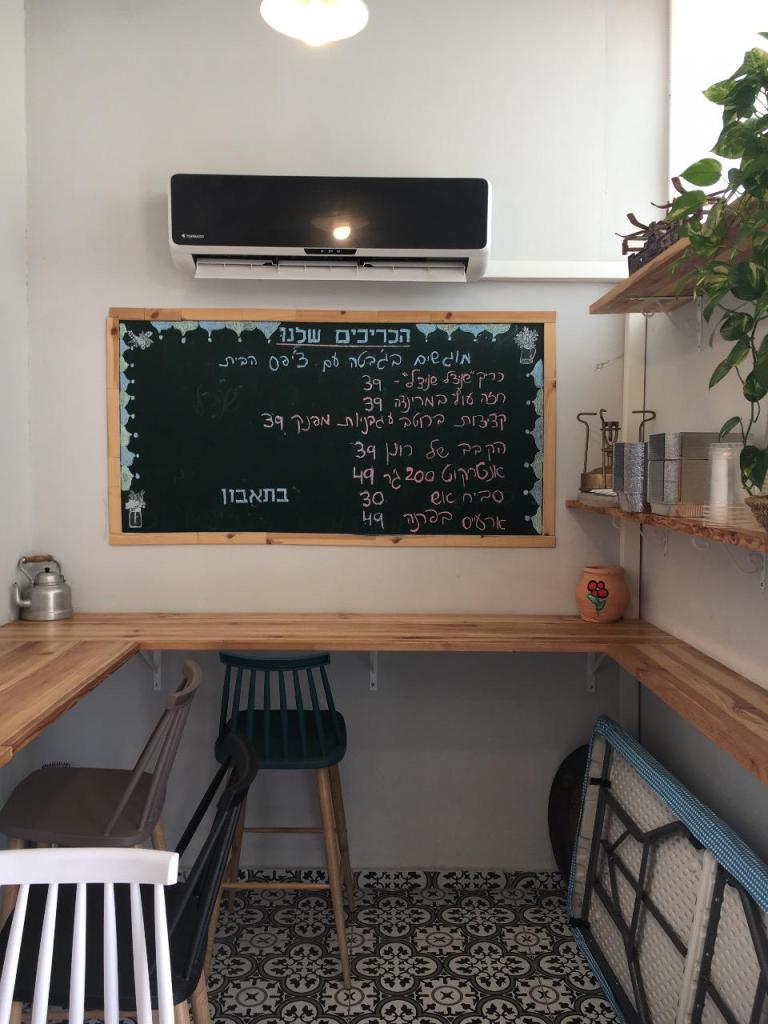 TORNADO
הכריכים שלנו
מוגשים בג'בטה עם צ'יפס הבית
כריך "שניצל שניצל" - 39
חזה עוף במרינדה 39
קציצות ברוטב עגבניות מפנק 39
הקבב של רונן 39
אנטריקוט 200 גר' 49
סביח אש 30
ארעייס בפתה 49
בתאבון